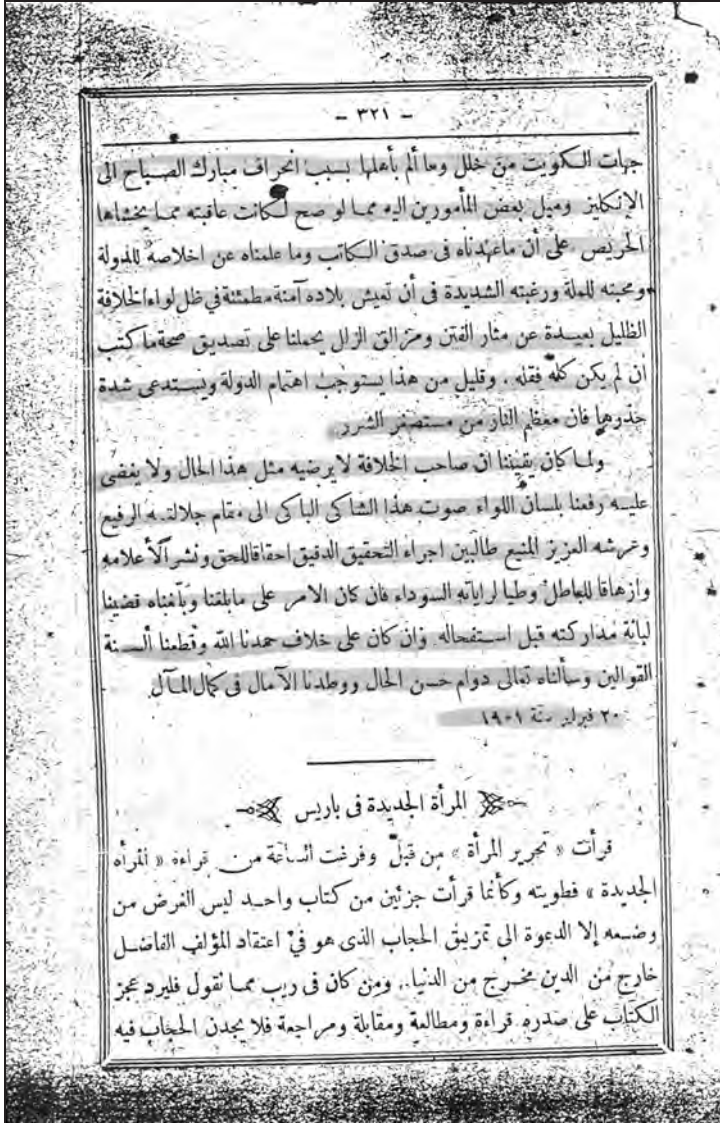 - ٣٢١ -
جهات الكويت من خلل وما ألم بأهلها بسبب انحراف مبارك الصباح الى
الإنكليز وميل بعض المأمورين اليه مما لو صح لكانت عاقبته مما يخشاها
الحريص على أن ماعهدناه فى صدق الكاتب وما علمناه عن اخلاصه للدولة
ومحبته للملة ورغبته الشديدة فى أن تعيش بلاده آمنة مطمئنة فى ظل لواء الخلافة
الظليل بعيدة عن مثار الفتن ومزالق الزلل يحملنا على تصديق صحة ما كتب
ان لم يكن كله فقله. وقليل من هذا يستوجب اهتمام الدولة ويستدعى شدة
حذوها فان معظم النار من مستصغر الشرر
ولما كان يقيننا ان صاحب الخلافة لا يرضيه مثل هذا الحال ولا يغضى
عليه رفعنا بلسان اللواء صوت هذا الشاكى الباكى الى مقام جلالته الرفيع
وعرشه العزيز المنيع طالبين اجراء التحقيق الدقيق احقاقا للحق ونشر الأعلامه
وازهاقا للباطل وطيا لراياته السوداء فان كان الامر على مابلغنا وبلغناه قضينا
لبانة مداركته قبل استفحاله. وان كان على خلاف حمدنا الله وقطعنا ألسنة
القوالين وسألناه تعالى دوام حسن الحال ووطدنا الآمال فى كمال المآل
٢٠ فبراير سنة ١٩٠١
المرأة الجديدة فى باريس
قرأت « تحرير المرأة » من قبل وفرغت الساعة من قراءة « المرأه
الجديدة » فطويته وكأنما قرأت جزئين من كتاب واحد ليس الغرض من
وضعه إلا الدعوة الى تمزيق الحجاب الذى هو فى اعتقاد المؤلف الفاضل
خارج من الدين مخرج من الدنيا. ومن كان فى ريب مما نقول فليرد عجز
الكتاب على صدره قراءة ومطالعة ومقابلة ومراجعة فلا يجدن الحجاب فيه